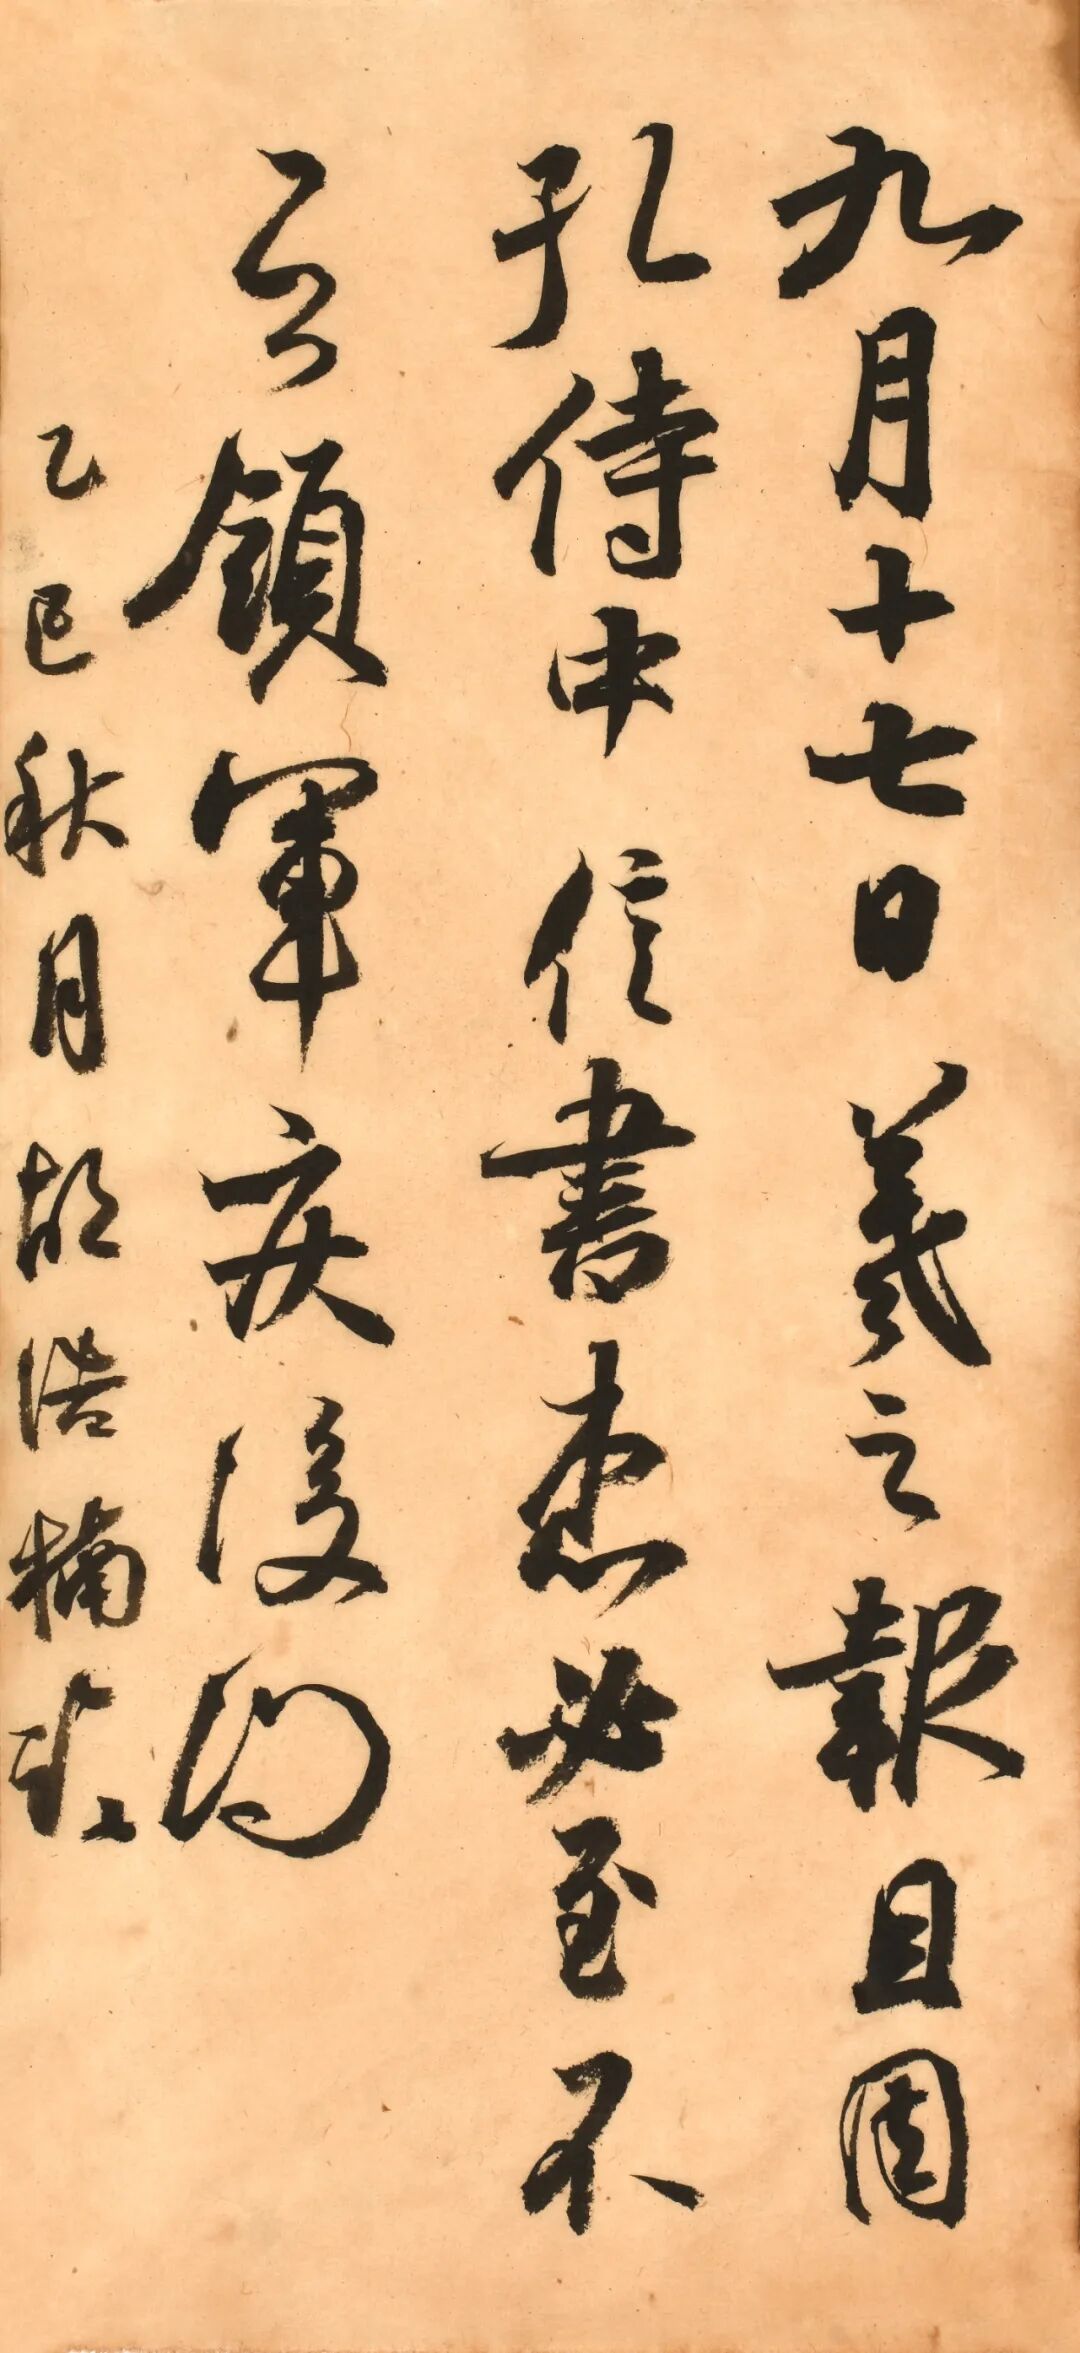 九月十七日羲之報且因
孔侍中信書想必至不
知領軍疾後問
乙巳秋月胡浩楠書